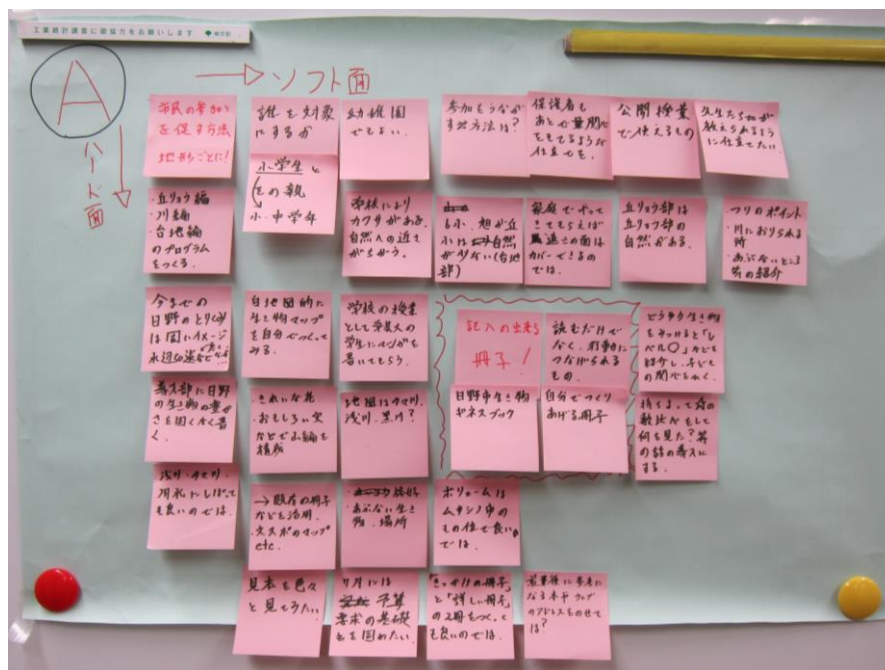 工業統計調査に御協力をお願いします
A
→ソフト面
ハード面
市民の参加
を促す方法
地形ごとに!
誰を対象
にするか
幼稚園
でもよい。
参加をうなが
す方法は?
保護者も
あとで量関心
をもてるような
仕立てを。
公開授業
で使えるもの
先生たちが
教えられるよう
に仕立てたい。
小学生と
その親
小・中学年
・丘リョウ編
・川編
・台地編
のプログラム
をつくる。
学校により
カクサがある。
自然への近さ
がちがう。
小は自然
が少ない(台地
部)
家庭でやって
きてもらえば
遠さの面は
カバーできるの
では。
丘リョウ部は
丘リョウ部の
自然がある。
つりのポイント
・川におりられる
所
・あぶないところ
等の紹介
今までの
日野のとりくみ
は固いイメージ
白地図的に
生き物マップ
を自分でつくって
みる。
学校の授業
として
学生にマンガを
書いてもらう。
記入の出来る
冊子!
読むだけで
なく、行動に
つなげられる
もの。
どういう生き物
をみつけると「レ
ベル〇」などを
紹介し、子ども
の関心をひく。
導入部に日野
の生き物の豊か
さを固くなく書
く。
・きれいな花
・おもしろい実
などで
構成
地図はタマ川、
浅川、黒川?
日野市生き物
ギネスブック
自分でつくり
あげる冊子
持ちよって☆の
数比べをして
何を見た?等
の話の導入に
する。
浅川・タマ川・
用水にしぼって
も良いのでは。
→既存の冊子
などを活用。
マップ
etc.
・あぶない生き
物、場所
ボリュームは
のもの位で良い
では。
見本を色々
と見てみたい
7月には
予算
要求の基礎
を固めたい。
「きっかけの冊子」
と「詳しい冊子」
の2冊をつくって
も良いのでは。
最後に参考に
なる本やウェブ
のアドレスをのせて
は?